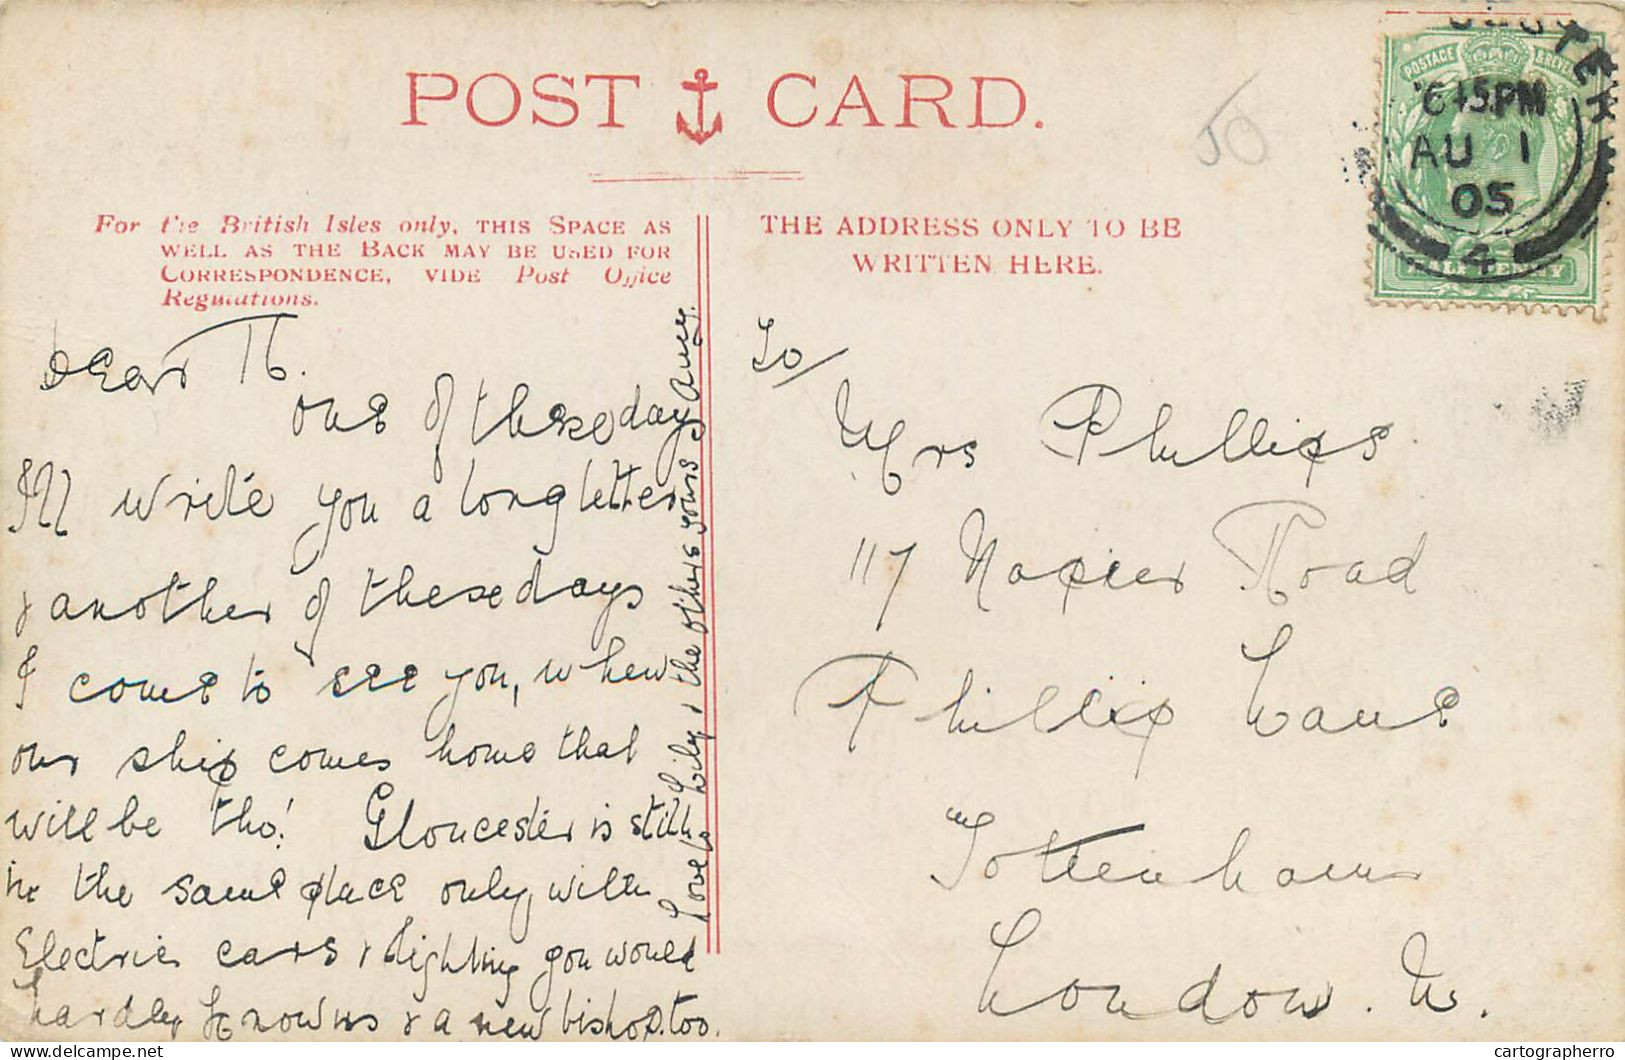 POST CARD.
For the British Isles only, THIS SPACE AS
WELL AS THE BACK MAY BE USED FOR
CORRESPONDENCE, VIDE Post Office
Regulations.
THE ADDRESS ONLY TO BE
WRITTEN HERE.
POSTAGE & REVE
HALF PENNY
6 45 PM
AU 1
05
4
50
Dear
one of these days
I'll write you a long letter
& another of these days
I come to see you, when
our ship comes home that
will be tho! Gloucester is still
in the same place only with
Electric cars & lighting you would
hardly know us & a new bishop too.
Love to Lily & the others yours
To/
Mrs Phillips
117 Napier Road
Phillip Lane
Tottenham
London. N.
delcampe.net
cartographerro